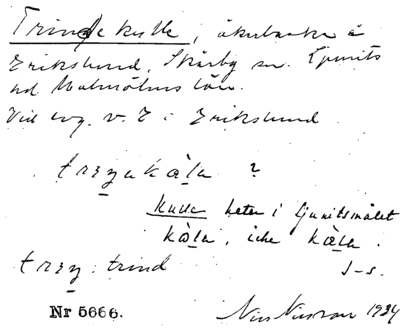 Trindekulle, åkerbacke å
Erikslund, Skårby sn. Ljunits
hd. Malmöhus län.
Vid wg. v. E i Erikslund.
trezn̥akàla ?
Kulle heter i Ljunitsmålet
kàla, icke kæla.
trezn̥: trind J-s.
Nr 5666. Nils Nilsson 1934